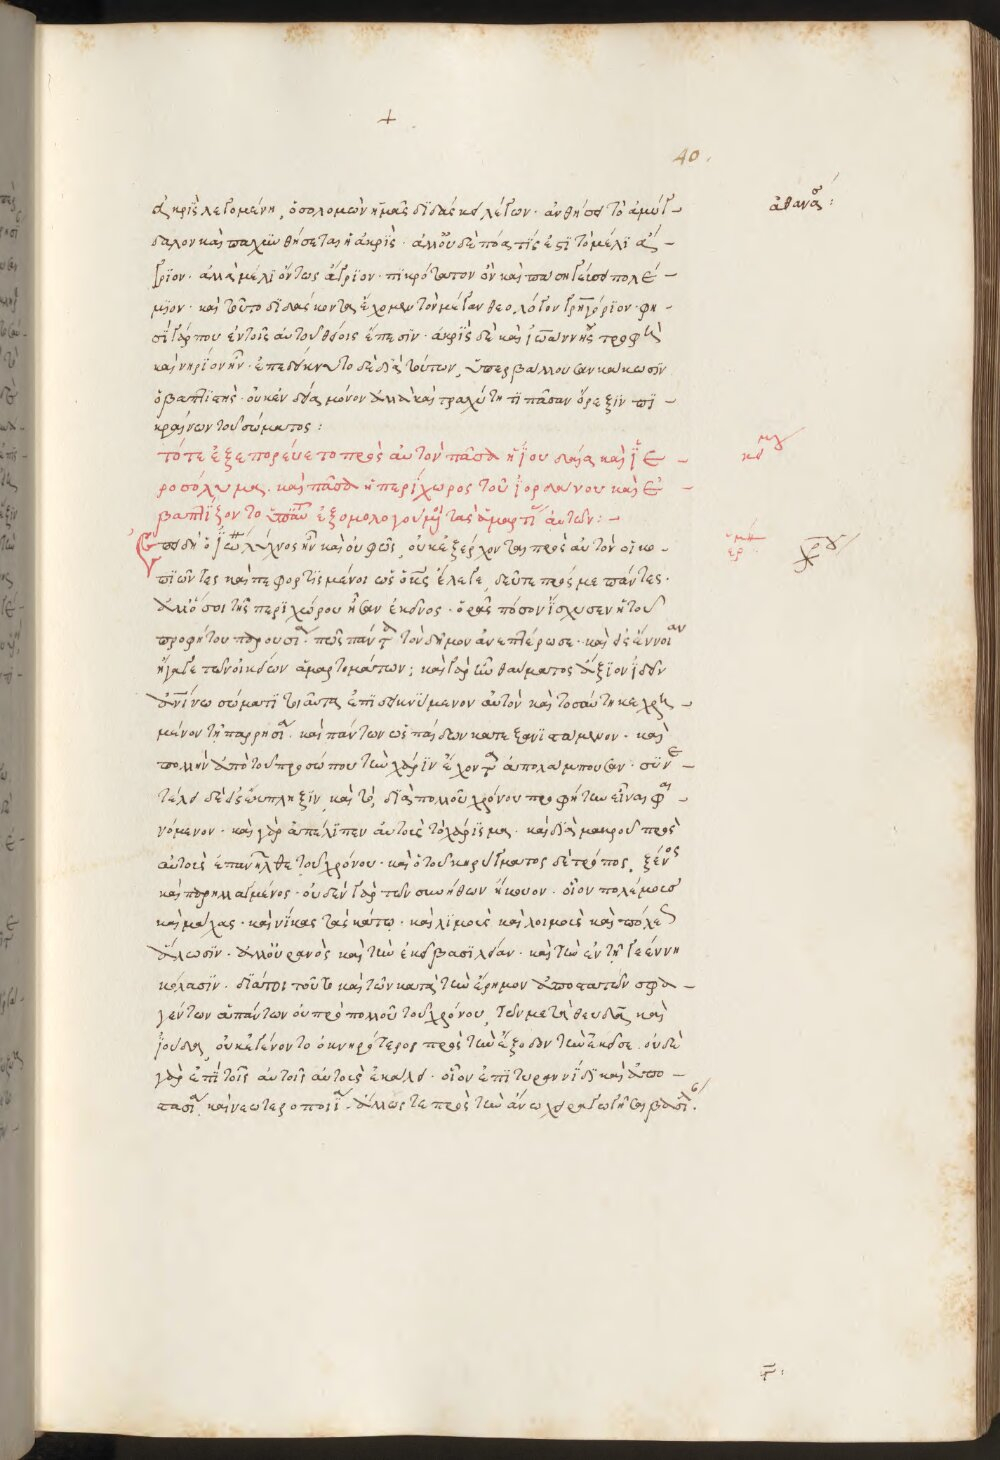 +
40.
ἀκρὶς λεγομένη, ὁ σολομὼν ἡμᾶς διδάσκει λέγων· ἀνθήσει τὸ ἀμύγ-
δαλον καὶ παχυνθήσεται ἡ ἀκρίς· ἀλλ' οὐδὲ πόα τίς ἐστι τὸ μέλι ἄ-
γριον· ἀλλὰ μέλι ὄντως ἄγριον· πικρότατον ὂν καὶ πάσῃ γεύσει πολέ-
μιον· καὶ τοῦτο διδάσκοντα ἔχομεν τὸν μέγαν θεολόγον γρηγόριον· φη-
σὶ γάρ που ἐν τοῖς αὐτοῦ θείοις ἔπεσιν· ἀκρὶς δὲ καὶ ἰωάννης τροφὴ
καὶ κηρίον ἦν· ἐπεδείκνυτο δὲ διὰ τούτων, ὑπερβάλλουσαν κάκωσιν
ὁ βαπτιστής· οὐκ ἐνδείᾳ μόνον ἀλλὰ καὶ τραχύτητι πᾶσαν ὄρεξιν πι-
κραίνων τοῦ σώματος:
τότε ἐξεπορεύετο πρὸς αὐτὸν πᾶσα ἡ ἰουδαία καὶ ἱε-
ροσόλυμα. καὶ πᾶσα ἡ περίχωρος τοῦ ἰορδάνου καὶ ἐ-
βαπτίζοντο ὑπ' αὐτοῦ ἐξομολογούμενοι τὰς ἁμαρτίας αὐτῶν:-
Ἐπειδὴ ὁ ἰωάννης λύχνος ἦν καὶ οὐ φῶς, οὐκ ἐξέρχονται πρὸς αὐτὸν οἱ κο-
πιῶντες καὶ πεφορτισμένοι ὡς ὁ κύριος ἔλεγε, δεῦτε πρός με πάντες·
ἀλλ' ὅσοι τῆς περιχώρου ἦσαν ἐκεῖνος· ὁρᾷς πόσον ἴσχυσεν ἡ τοῦ
προφήτου παρουσία· πῶς πάντα τὸν δῆμον ἀνεπτέρωσε· καὶ εἰς ἔννοιαν
ἤγαγε τῶν οἰκείων ἁμαρτημάτων; καὶ γὰρ ἦν θαύματος ἄξιον ἰδεῖν
ἀνθρωπίνῳ σώματι τοιαῦτα ἐπιδεικνύμενον αὐτὸν καὶ τοσαύτῃ κεχρη-
μένον τῇ παρρησίᾳ· καὶ πάντων ὡς παίδων κατεξανιστάμενον· καὶ
πολλὴν ἀπὸ τοῦ προσώπου τὴν χάριν ἔχοντα ἀπολάμπουσαν· συνε-
τέλει δὲ εἰς ἔκπληξιν, καὶ τὸ, διὰ πολλοῦ χρόνου προφήτην εἶναι φαι-
νόμενον· καὶ γὰρ ἀπέλιπεν αὐτοὺς τὸ χάρισμα· καὶ διὰ μακροῦ πρὸς
αὐτοὺς ἐπανῆλθε τοῦ χρόνου· καὶ ὁ τοῦ κηρύγματος δὲ τρόπος, ξένος
καὶ παρηλλαγμένος· οὐδὲν γὰρ τῶν συνήθων ἤκουον· οἷον πολέμους
καὶ μάχας· καὶ νίκας τὰς κάτω· καὶ λιμοὺς καὶ λοιμοὺς καὶ πόλεως
ἅλωσιν· ἀλλ' οὐρανὸς καὶ τὴν ἐκεῖ βασιλείαν· καὶ τὴν ἐν τῇ γεέννῃ
κόλασιν· διάτοι τοῦτο καὶ τῶν κατὰ τὴν ἔρημον ἀποστατῶν σφα-
γέντων ἁπάντων οὐ πρὸ πολλοῦ τοῦ χρόνου, τῶν μετὰ θευδᾶ καὶ
ἰούδα, οὐκ ἐγένοντο ὀκνηρότερος πρὸς τὴν ἔξοδον τὴν ἐκεῖσε· οὐδὲ
γὰρ ἐπὶ τοῖς αὐτοῖς αὐτοὺς ἐκάλει· οἷον ἐπὶ τυραννίδι καὶ ἀπο-
στασίᾳ, καὶ νεωτεροποιίᾳ· ἄλλως τε πρὸς τὴν ἄνω χειραγωγῆσαι βασιλεί.
ἀθανασ: